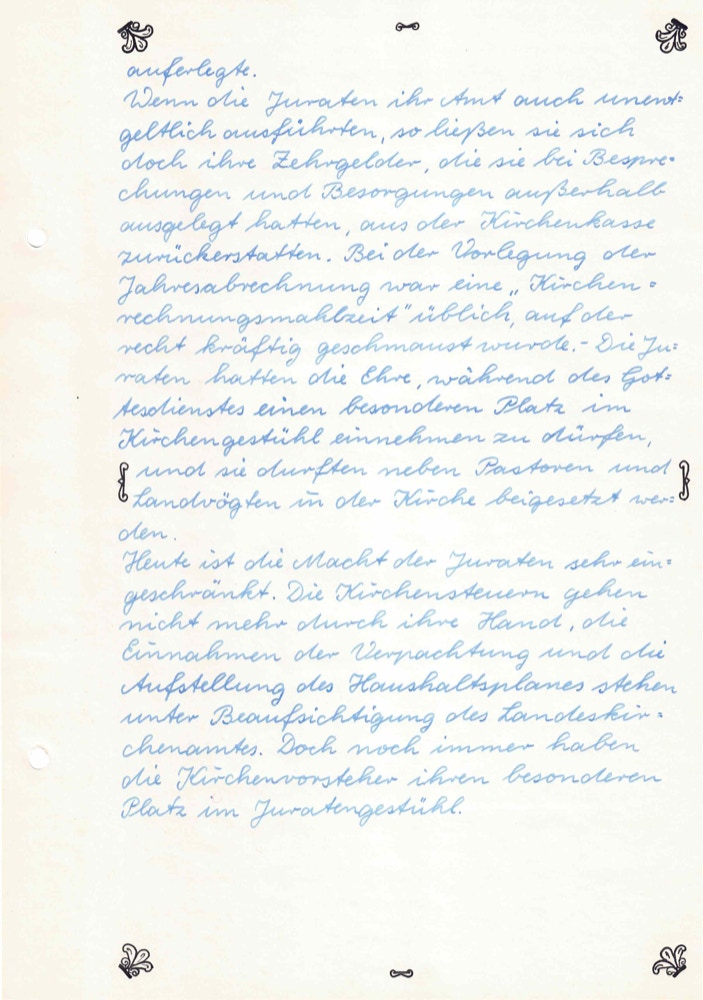 auferlegte.
Wenn die Juraten ihr Amt auch unent=
geltlich ausführten, so ließen sie sich
doch ihre Zehrgelder, die sie bei Bespre-
chungen und Besorgungen außerhalb
ausgelegt hatten, aus der Kirchenkasse
zurückerstatten. Bei der Vorlegung der
Jahresabrechnung war eine „Kirchen=
rechnungsmahlzeit" üblich, auf der
recht kräftig geschmaust wurde.- Die Ju=
raten hatten die Ehre, während des Got=
tesdienstes einen besonderen Platz im
Kirchengestühl einnehmen zu dürfen,
und sie durften neben Pastoren und
Landvögten in der Kirche beigesetzt wer=
den.
Heute ist die Macht der Juraten sehr ein=
geschränkt. Die Kirchensteuern gehen
nicht mehr durch ihre Hand, die
Einnahmen der Verpachtung und die
Aufstellung des Haushaltsplanes stehen
unter Beaufsichtigung des Landeskir=
chenamtes. Doch noch immer haben
die Kirchenvorsteher ihren besonderen
Platz im Juratengestühl.